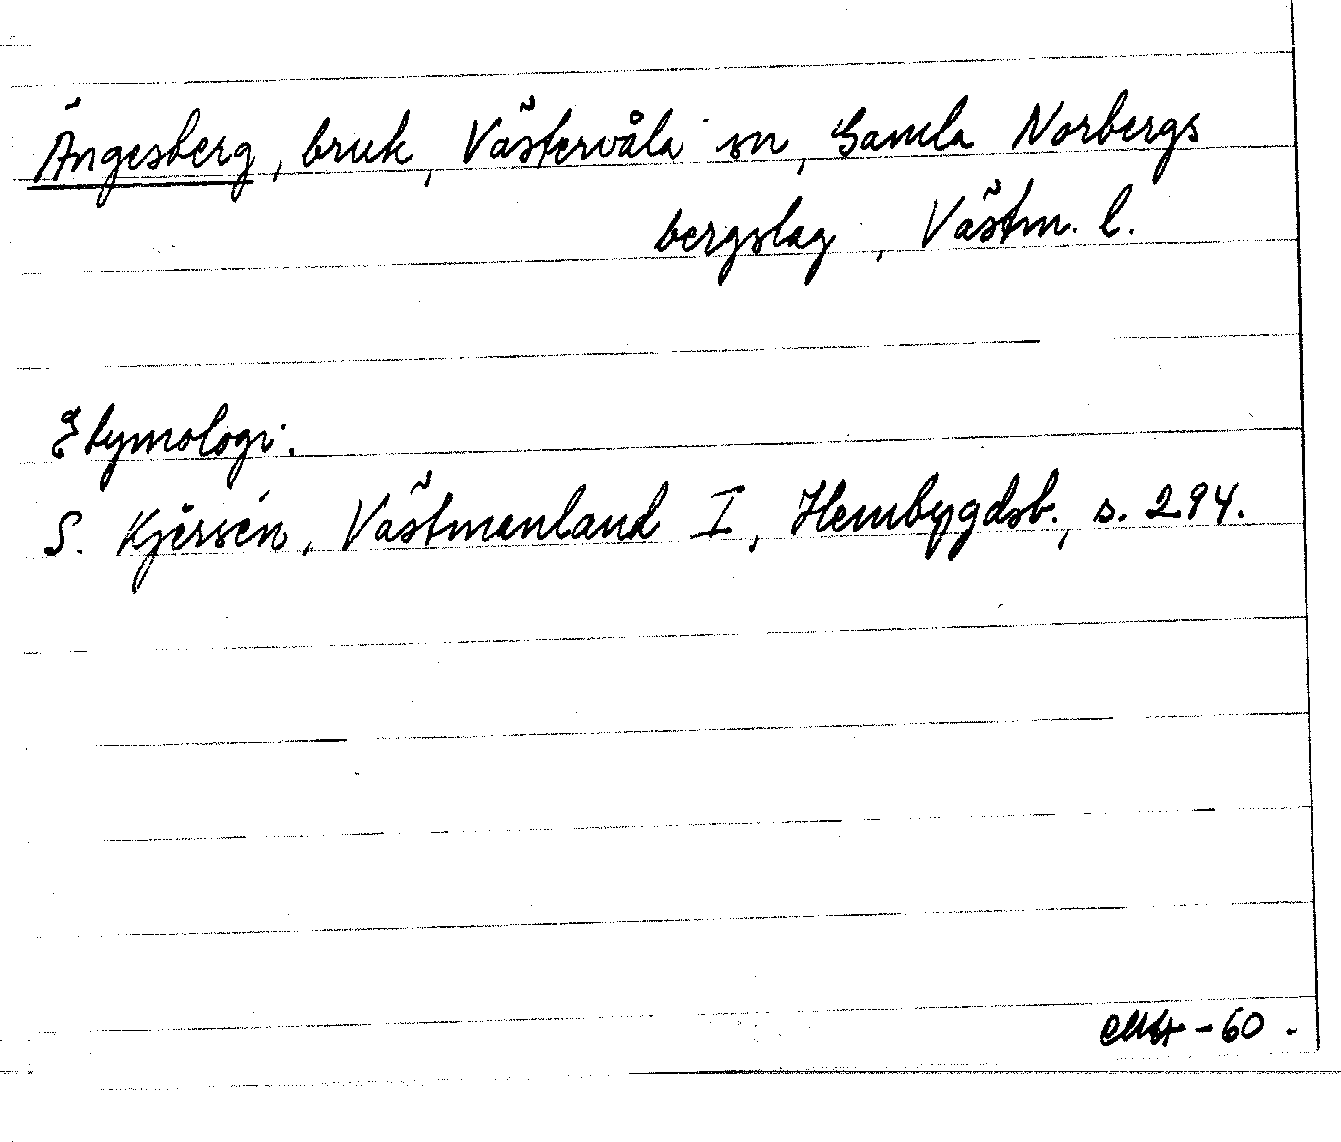 Ängesberg, bruk, Västervåla sn, Gamla Norbergs
bergslag, Västm. l.
Etymologi.
S. Kjersén, Västmanland I, Hembygdsb., s. 294.
-60.